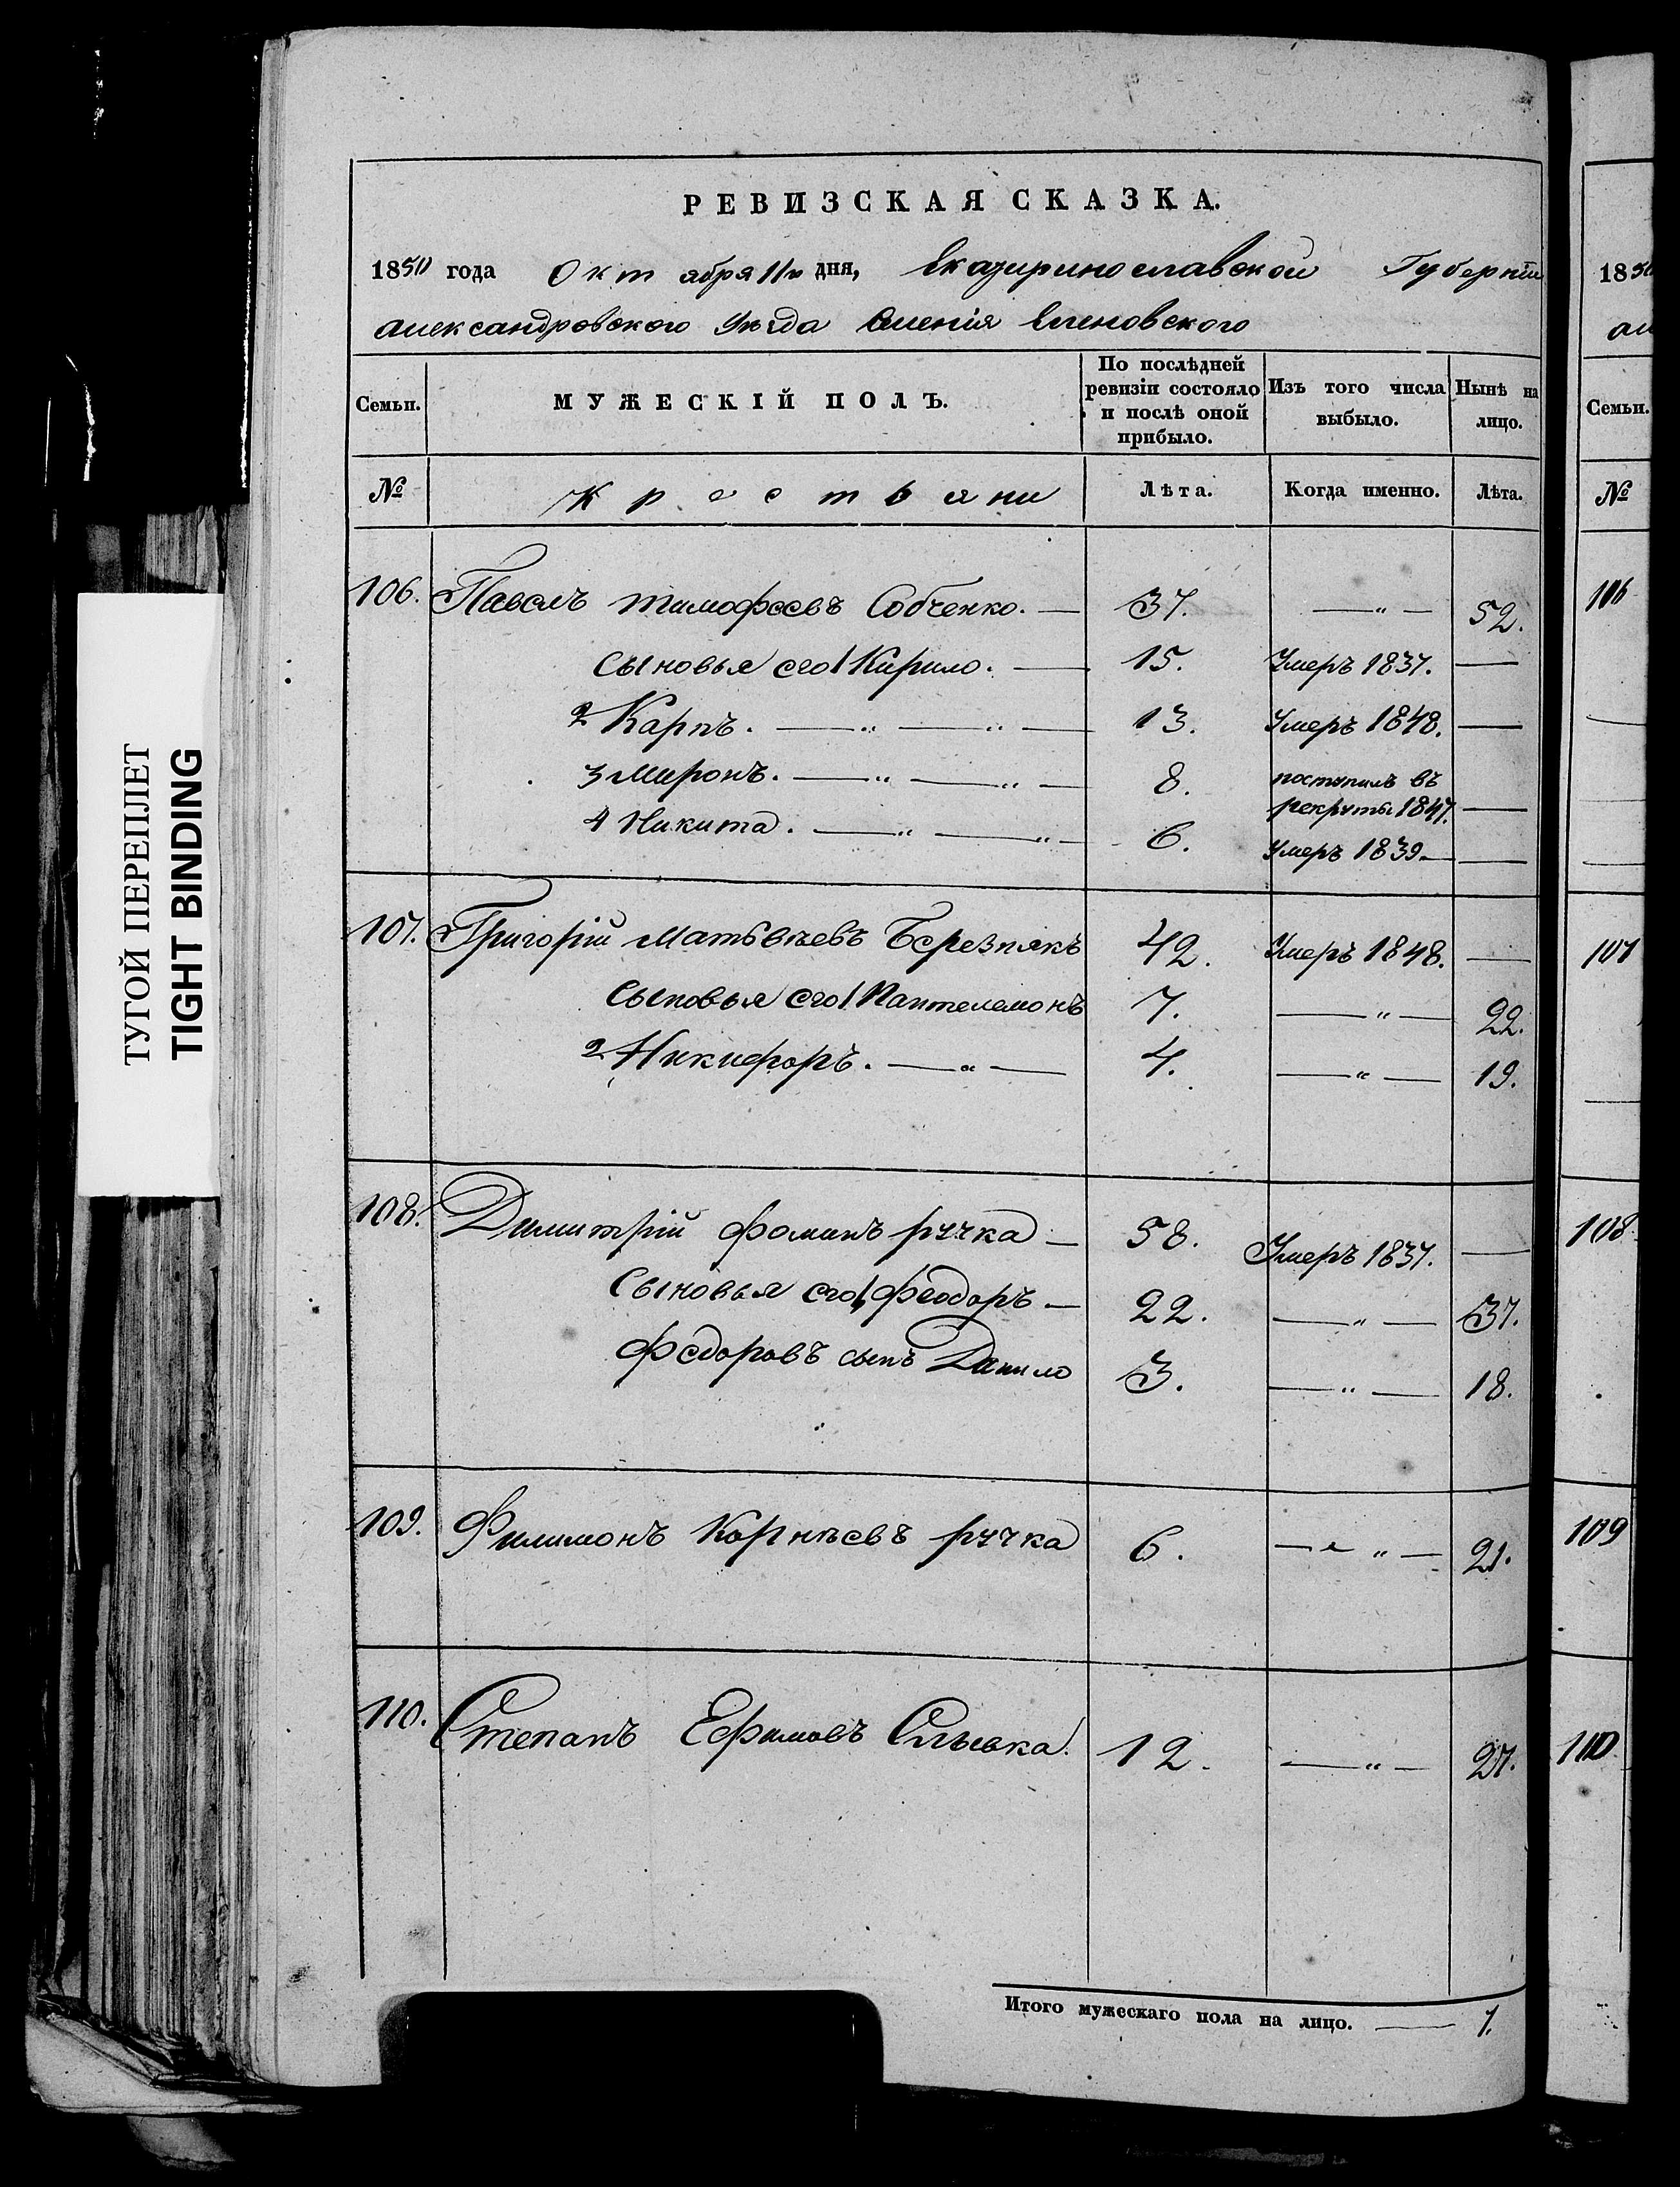 ТУГОЙ ПЕРЕПЛЕТ
TIGHT BINDING
РЕВИЗСКАЯ СКАЗКА.
1850 года Октября 11го дня, Екатеринославской Губерніи
Александровского Уѣзда Имѣнія Еленовского
Семьи. МУЖЕСКІЙ ПОЛЪ. По послѣдней ревизіи состояло и послѣ оной прибыло. Изъ того числа выбыло. Нынѣ на лицо.
№ Крестьяни Лѣта. Когда именно. Лѣта.
106. Павелъ Тимофеевъ Собченко. — 37. —„— 52.
сыновья его 1 Кирило. — 15. Умеръ 1837. —
2 Карпъ. —„—„— 13. Умеръ 1848. —
3 Миронъ. —„—„— 8. поступилъ въ рекруты 1847. —
4 Никита. —„—„— 6. Умеръ 1839 — —
107. Григорій Матвѣевъ Березнякъ 42. Умеръ 1848. —
Сыновья его 1 Пантелемонъ 7. —„— 22.
2 Никифоръ. —„— 4. —„— 19.
108. Димитрій Фоминъ Ручка — 58. Умеръ 1837. —
Сыновья его 1, Феодоръ — 22. —„— 37.
Федоровъ сынъ Данило 3. —„— 18.
109. Филимонъ Корнѣевъ Ручка 6. —„— 21.
110. Степанъ Ефимовъ 12. —„— 27.
Итого мужескаго пола на лицо. — 7.
18
Семьи.
№
106
107
108
109
110